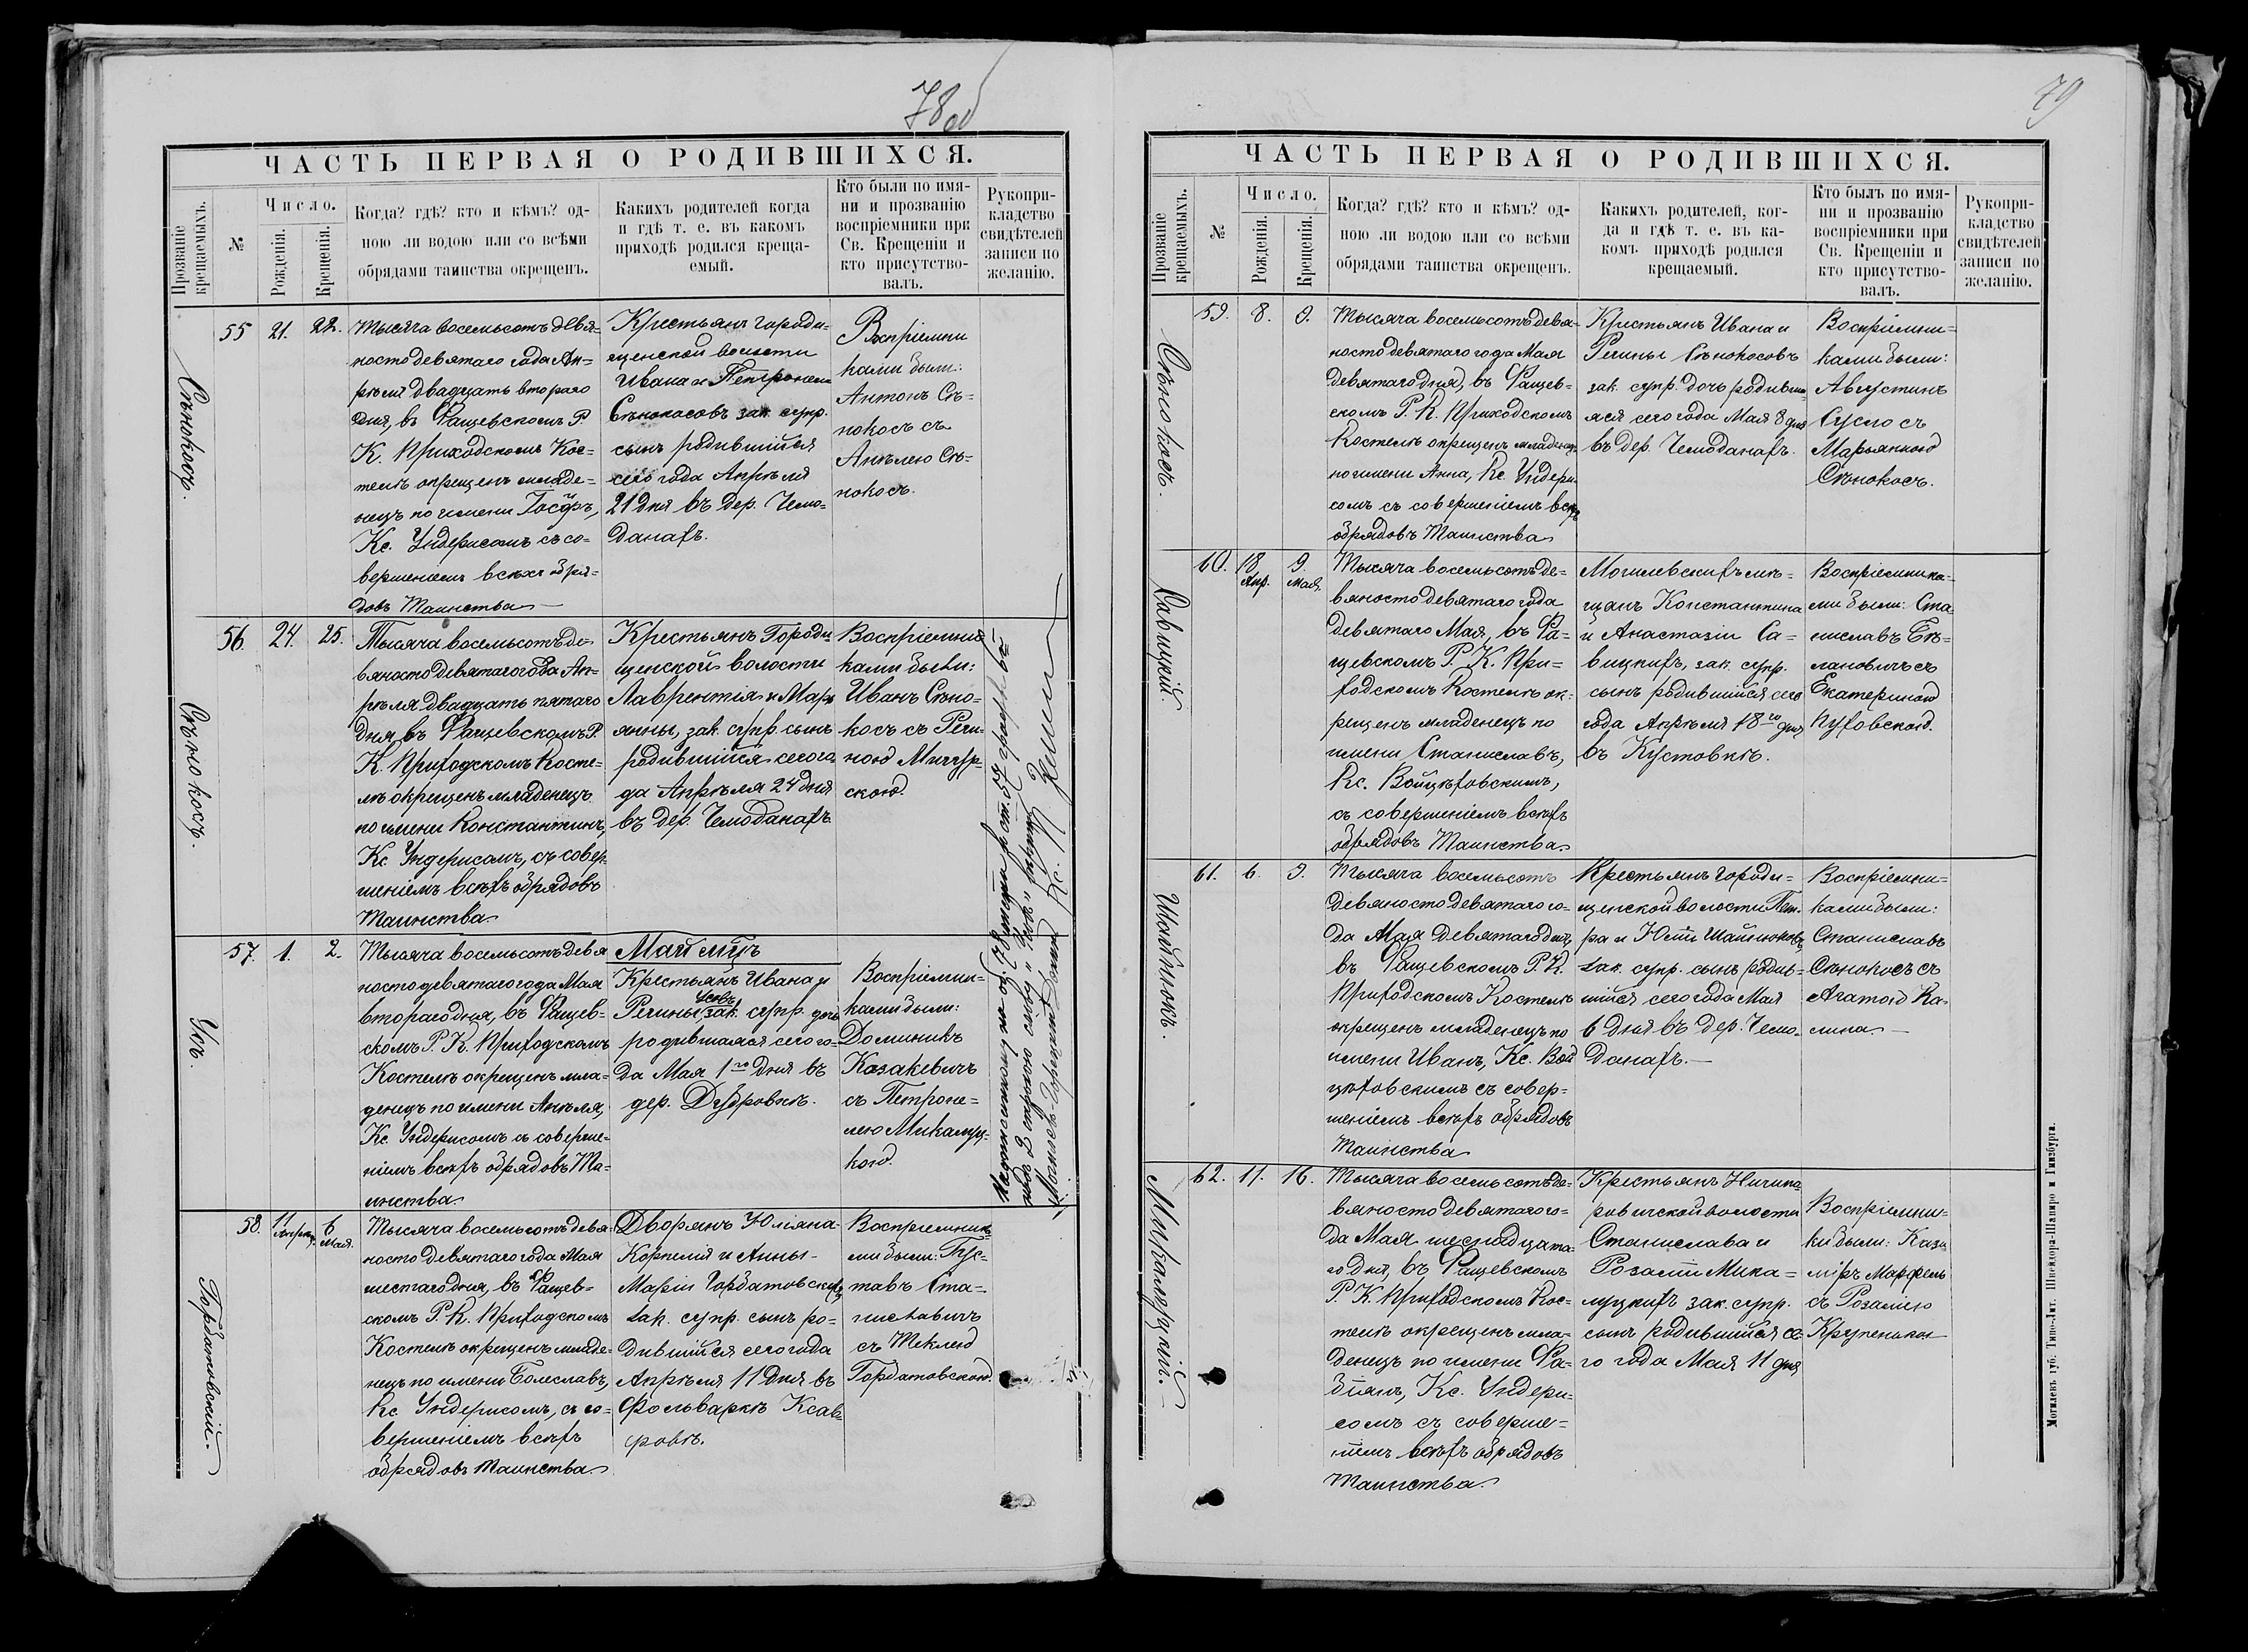 78 об
ЧАСТЬ ПЕРВАЯ О РОДИВШИХСЯ.
Прозваніе крещаемыхъ.
№
Число.
Рожденія.
Крещенія.
Когда? гдѣ? кто и кѣмъ? од-
ною ли водою или со всѣми
обрядами таинства окрещенъ.
Какихъ родителей когда
и гдѣ т. е. въ какомъ
приходѣ родился креща-
емый.
Кто были по имя-
ни и прозванію
воспріемники при
Св. Крещеніи и
кто присутство-
валъ.
Рукопри-
кладство
свидѣтелей
записи по
желанію.
Сѣнокосъ.
55
21.
22.
Тысяча восемьсотъ девя-
носто девятаго года Ап-
рѣля двадцать втораго
дня, въ Фащевскомъ Р.
К. Приходскомъ Кос-
телѣ окрещенъ младе-
нецъ по имени Іосифъ,
Кс. Ундерисомъ съ со-
вершеніемъ всѣхъ обря-
довъ Таинства
Крестьянъ Городи-
щенской волости
Ивана и Петронели
Сѣнокосовъ зак. супр.
сынъ родившійся
сего года Апрѣля
21 дня въ дер. Чемо-
данахъ.
Воспріемни
ками были:
Антонъ Сѣ-
нокосъ съ
Анѣлею Сѣ-
нокосъ.
Сѣнокосъ.
56.
24.
25.
Тысяча восемьсотъ де-
вяносто девятаго года Ап-
рѣля двадцать пятаго
дня, въ Фащевскомъ Р.
К. Приходскомъ Косте-
лѣ окрещенъ младенецъ
по имени Константинъ,
Кс Ундерисомъ, съ совер-
шеніемъ всѣхъ обрядовъ
Таинства
Крестьянъ Городи
щенской волости
Лаврентія и Марь
янны, зак. супр. сынъ
родившійся сего го
да Апрѣля 24 дня
въ дер. Чемоданахъ
Воспріемни-
ками были:
Иванъ Сѣно-
косъ съ Реги-
ною Мицур-
скою.
Усъ.
57.
1.
2.
Тысяча восемьсотъ девя
носто девятаго года Мая
втораго дня, въ Фащев-
скомъ Р. К. Приходскомъ
Костелѣ окрещенъ мла-
денецъ по имени Анѣля,
Кс. Ундерисомъ съ соверше-
ніемъ всѣхъ обрядовъ Та-
инства
Май мѣсяцъ
Крестьянъ Ивана и
Усовъ
Регины зак. супр. дочь
родившаяся сего го-
да Мая 1го дня въ
дер. Дубровкѣ.
Воспріемни-
ками были:
Доминикъ
Казакевичъ
съ Петроне-
лею Микалуц-
кою.
Горбатовскій.
58.
11 Апрѣля.
6 Мая.
Тысяча восемьсотъ девя-
носто девятаго года Мая
шестаго дня, въ Фащев-
скомъ Р. К. Приходскомъ
Костелѣ окрещенъ младе-
нецъ по имени Болеславъ,
Кс Ундерисомъ, съ со-
вершеніемъ всѣхъ
обрядовъ Таинства
Дворянъ Юліяна-
Корнелія и Анны-
Маріи Горбатовскихъ
зак. супр. сынъ ро-
дившійся сего года
Апрѣля 11 дня въ
Фольваркѣ Ксаве-
ровкѣ.
Воспріемника-
ми были: Гус-
тавъ Ста-
ниславичъ
съ Теклею
Горбатовскою.
79
ЧАСТЬ ПЕРВАЯ О РОДИВШИХСЯ.
Прозваніе крещаемыхъ.
№
Число.
Рожденія.
Крещенія.
Когда? гдѣ? кто и кѣмъ? од-
ною ли водою или со всѣми
обрядами таинства окрещенъ.
Какихъ родителей, ког-
да и гдѣ т. е. въ ка-
комъ приходѣ родился
крещаемый.
Кто былъ по имя-
ни и прозванію
воспріемники при
Св. Крещеніи и
кто присутство-
валъ.
Рукопри-
кладство
свидѣтелей
записи по
желанію.
Сѣнокосъ.
59.
8.
9.
Тысяча восемьсотъ девя-
носто девятаго года Мая
девятаго дня, въ Фащев-
скомъ Р. К. Приходскомъ
Костелѣ окрещенъ младенецъ
по имени Анна, Кс. Ундери-
сомъ съ совершеніемъ всѣхъ
обрядовъ Таинства
Крестьянъ Ивана и
Регины Сѣнокосовъ
зак. супр. дочь родивша-
яся сего года Мая 8 дня
въ дер. Чемоданахъ.
Воспріемни-
ками были:
Августинъ
Сусло съ
Марьянною
Сѣнокосъ.
Савицкій.
60.
18 Апр.
9. Мая.
Тысяча восемьсотъ де-
вяносто девятаго года
девятаго Мая, въ Фа-
щевскомъ Р. К. При-
ходскомъ Костелѣ ок-
рещенъ младенецъ по
имени Станиславъ,
Кс. Войцѣховскимъ,
съ совершеніемъ всѣхъ
обрядовъ Таинства
Могилевскихъ мѣ-
щанъ Константина
и Анастазіи Са-
вицкихъ, зак. супр.
сынъ родившійся сего
года Апрѣля 18го дня
въ Кустовкѣ.
Воспріемника-
ми были: Ста-
ниславъ Бѣ-
лановичъ съ
Екатериною
Пуховскою.
Шайнюкъ.
61.
6.
9.
Тысяча восемьсотъ
девяносто девятаго го-
да Мая девятаго дня,
въ Фащевскомъ Р. К.
Приходскомъ Костелѣ
окрещенъ младенецъ по
имени Иванъ, Кс. Вой
цѣховскимъ съ совер-
шеніемъ всѣхъ обрядовъ
Таинства
Крестьянъ Городи-
щенской волости Пет-
ра и Юліи Шайнюковъ
зак. супр. сынъ родив-
шійся сего года Мая
6 дня въ дер. Чемо-
данахъ.
Воспріемни-
ками были:
Станиславъ
Сѣнокосъ съ
Агатою Ка-
лина.
Микалуцкій.
62.
11.
16.
Тысяча восемьсотъ де-
вяносто девятаго го-
да Мая шеснадцата-
го дня, въ Фащевскомъ
Р. К. Приходскомъ Кос-
телѣ окрещенъ мла-
денецъ по имени Фа-
біянъ, Кс. Ундери-
сомъ съ соверше-
ніемъ всѣхъ обрядовъ
Таинства
Крестьянъ Ничипо-
ровичской волости
Станислава и
Розаліи Мика-
луцкихъ зак. супр.
сынъ родившійся се-
го года Мая 11 дня
Воспріемни-
ки были: Кази-
міръ Марфель
съ Розаліею
Крупенько
Могилевъ губ. Типо-Лит. Шнейдора-Шапиро и Гинзбурга.